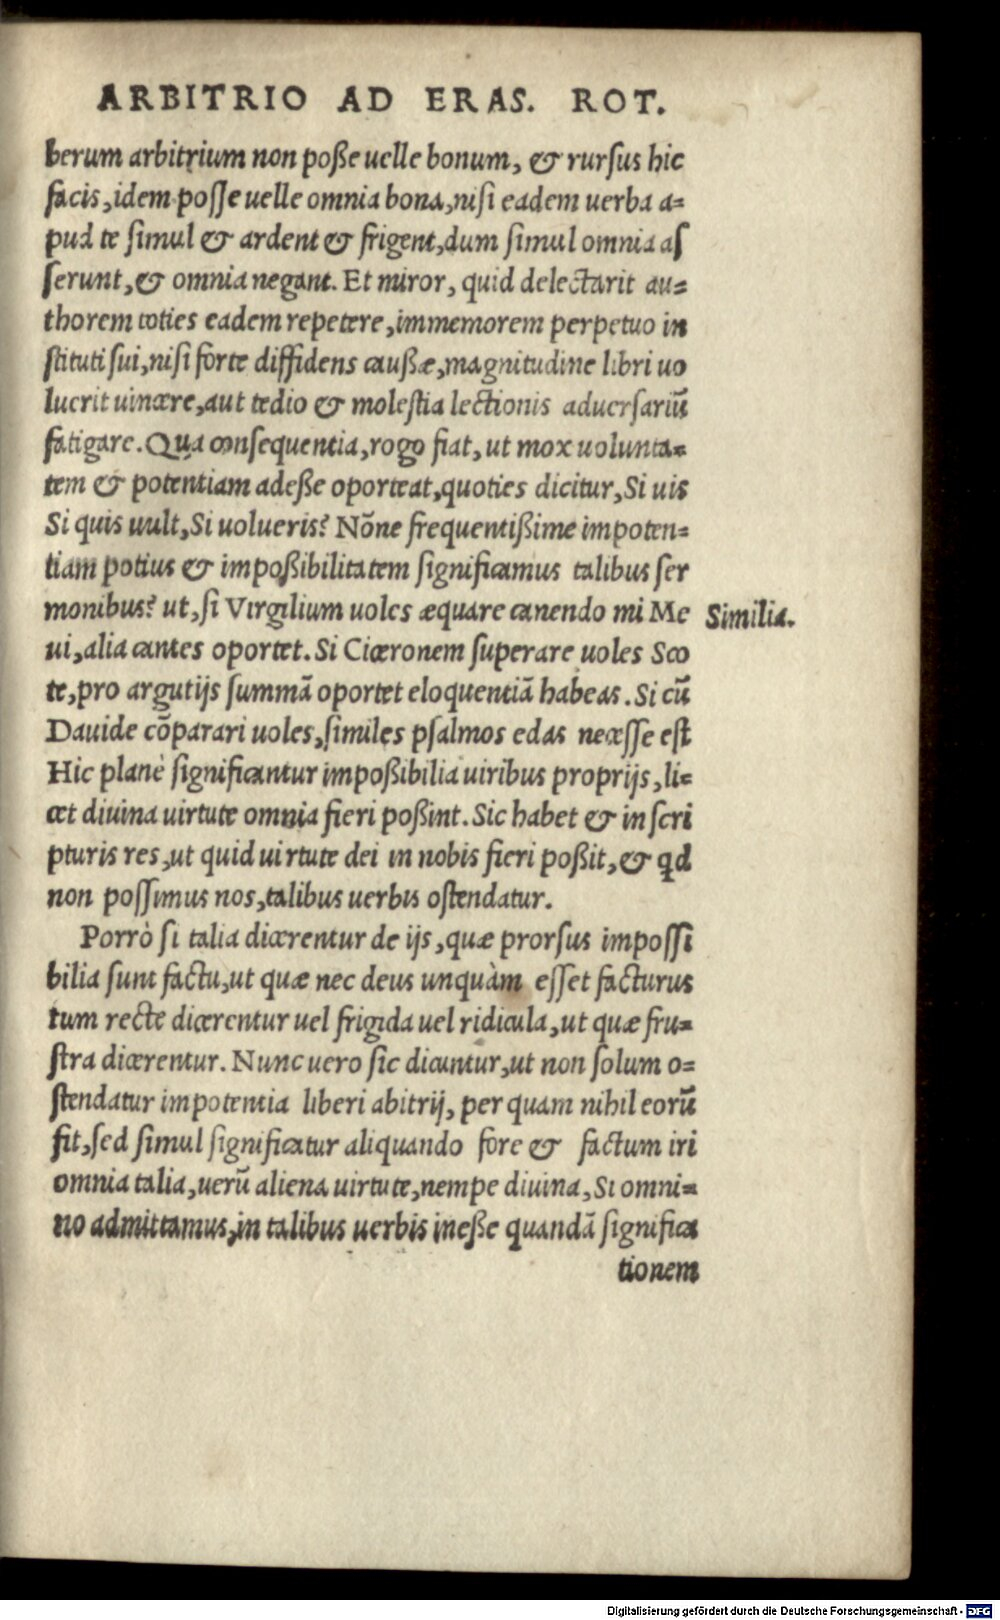 ARBITRIO AD ERAS. ROT.
berum arbitrium non poße uelle bonum, & rursus hic
facis, idem posse uelle omnia bona, nisi eadem uerba a=
pud te simul & ardent & frigent, dum simul omnia as
serunt, & omnia negant. Et miror, quid delectarit au=
thorem toties eadem repetere, immemorem perpetuo in
stituti sui, nisi forte diffidens caußæ, magnitudine libri uo
luerit uincere, aut tedio & molestia lectionis aduersariũ
fatigare. Qua consequentia, rogo fiat, ut mox uolunta=
tem & potentiam adeße oporteat, quoties dicitur, Si uis
Si quis uult, Si uolueris? Nõne frequentißime impoten=
tiam potius & impoßibilitatem significamus talibus ser
monibus? ut, si Virgilium uoles æquare canendo mi Me
ui, alia cantes oportet. Si Ciceronem superare uoles Sco
te, pro argutijs summã oportet eloquentiã habeas. Si cũ
Dauide cõparari uoles, similes psalmos edas necesse est
Hic planè significantur impoßibilia uiribus proprijs, li=
cet diuina uirtute omnia fieri poßint. Sic habet & in scri
pturis res, ut quid uirtute dei in nobis fieri poßit, & qd
non possimus nos, talibus uerbis ostendatur.
Porrò si talia dicerentur de ijs, quæ prorsus impossi
bilia sunt factu, ut quæ nec deus unquàm esset facturus
tum recte dicerentur uel frigida uel ridicula, ut quæ fru=
stra dicerentur. Nunc uero sic dicuntur, ut non solum o=
stendatur impotentia liberi abitrij, per quam nihil eorũ
fit, sed simul significatur aliquando fore & factum iri
omnia talia, uerũ aliena uirtute, nempe diuina, Si omni=
no admittamus, in talibus uerbis ineße quandã significa
tionem
Similia.
Digitalisierung gefördert durch die Deutsche Forschungsgemeinschaft - DFG